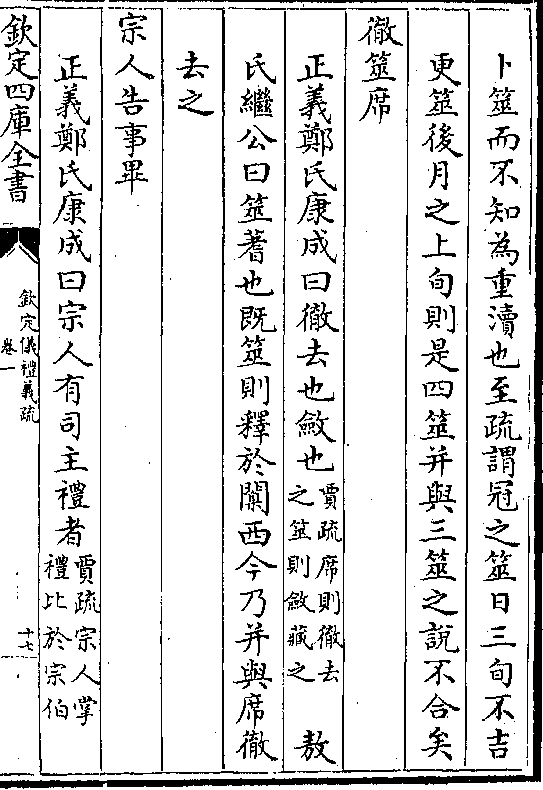 卜筮而不知為重瀆也至疏謂冠之筮日三旬不吉
更筮後月之上旬則是四筮并與三筮之說不合矣
徹筮席
正義鄭氏康成曰徹去也斂也賈疏席則徹去之筮則斂藏之　敖
氏繼公曰筮蓍也既筮則釋於闑西今乃并與席徹
去之
宗人告事畢
正義鄭氏康成曰宗人有司主禮者賈疏宗人掌禮比於宗伯
欽定四庫全書
欽定儀禮義疏
卷一
十七